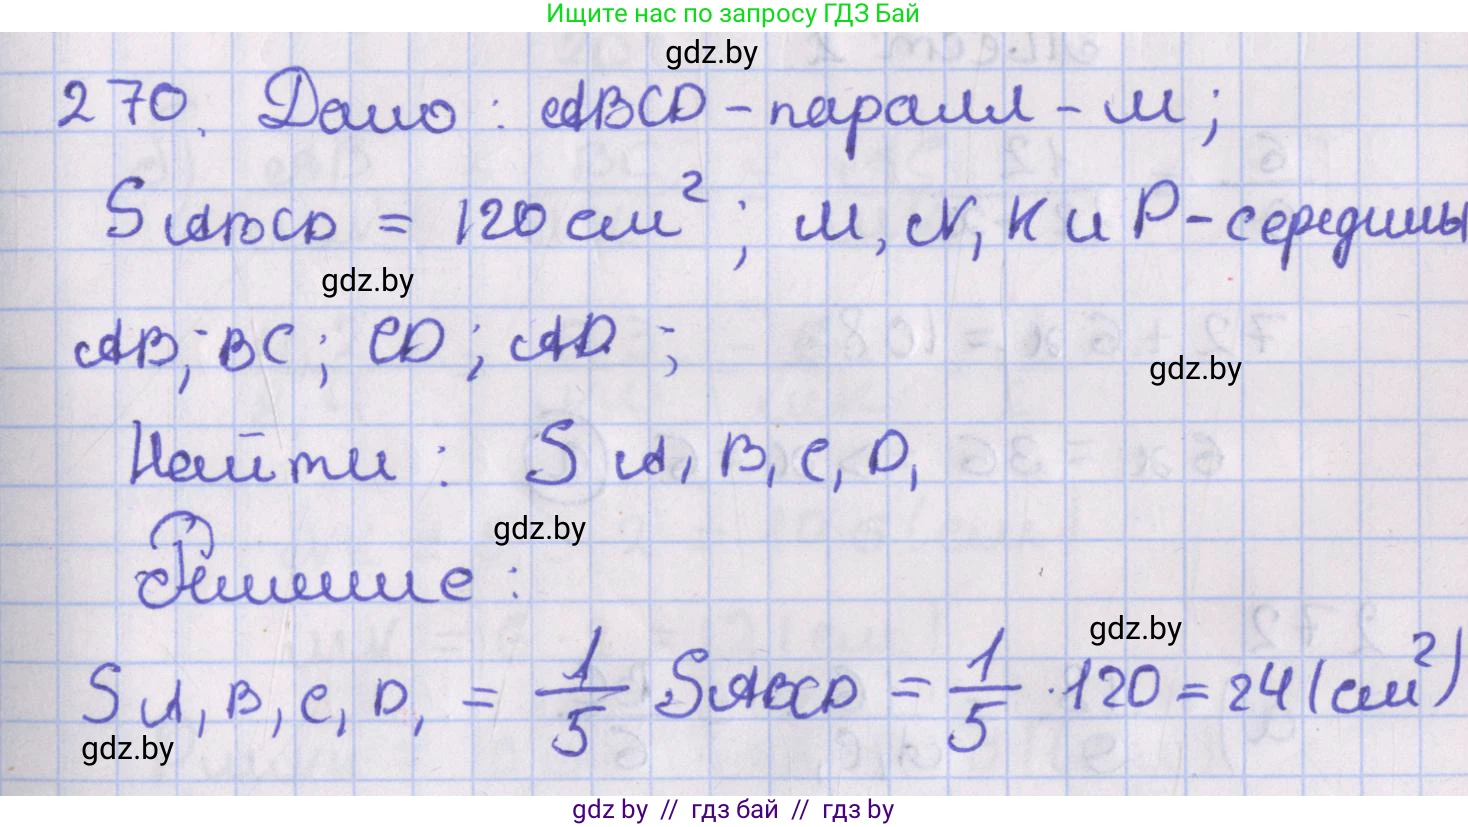 Ищите нас по запросу ГДЗ Бай
gdz.by
270. Дано: ABCD - паралл - м;
S ABCD = 120 см²; M, N, K и P - середины
gdz.by
AB; BC; CD; AD;
gdz.by
Найти: S A₁B₁C₁D₁
gdz.by
Решение:
gdz.by
S A₁B₁C₁D₁ = 1/5 S ABCD = 1/5 · 120 = 24 (см²)
gdz.by
gdz by // гдз бай // гдз by